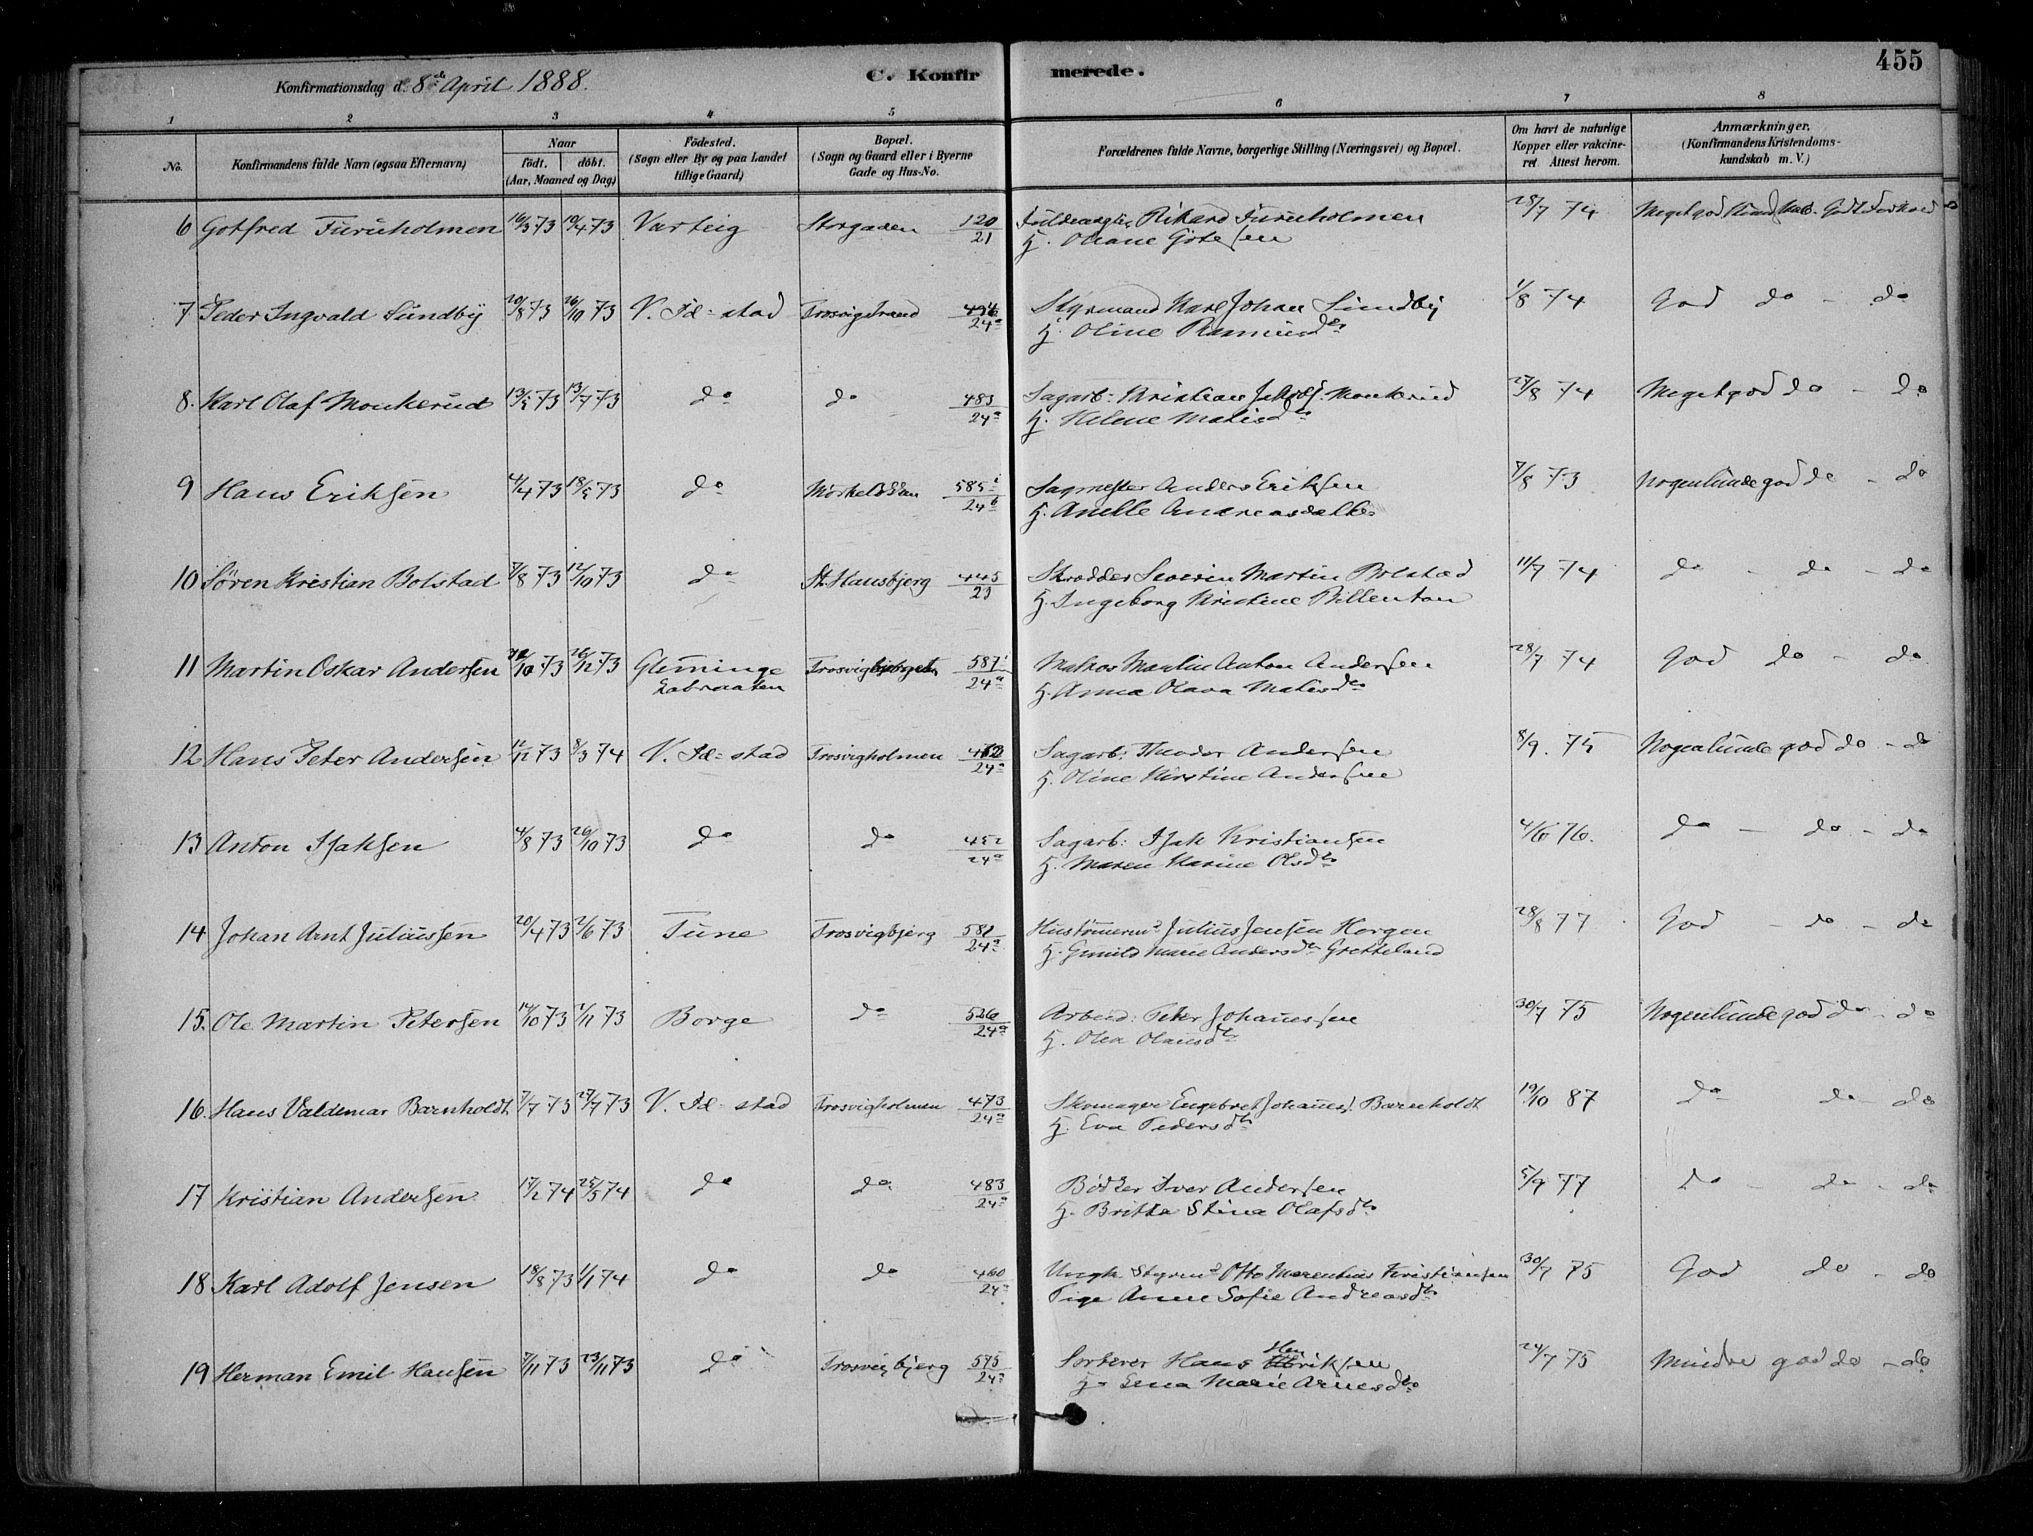 455
Konfirmationsdag d. 8de April 1888.
C. Konfirmerede.
1 2 3 4 5 6 7 8
No.
Konfirmandens fulde Navn (ogsaa Efternavn)
Naar
født. døbt.
(Aar, Maaned og Dag)
Fødested.
(Sogn eller By og paa Landet
tillige Gaard)
Bopæl.
(Sogn og Gaard eller i Byerne
Gade og Hus-No.
Forældrenes fulde Navne, borgerlige Stilling (Næringsvei) og Bopæl.
Om havt de naturlige
Kopper eller vakcine-
ret. Attest herom.
Anmærkninger.
(Konfirmandens Kristendoms-
kundskab m. V.)
6 Gotfred Furuholmen 16/3 73 19/4 73 Varteig Storgaden 120/21 Rikard Furuholmen 28/7 74 Meget god
H. Oliane
7 Peder Ingvald Sundby 20/8 73 26/10 73 V. Fd=stad Trosvigstrand 24a Styrmand Karl Johan Sundby 1/8 74 God do - do
H. Oline Rasmusdtr
8. Karl Olaf Monkerud 73 13/7 73 do do 483/24a Sagarb: Kristian Monkerud 27/8 74 Meget god do - do
H. Helene Mathisdtr
9 Hans Eriksen 4/4 73 18/5 73 do 585/24b Sagmester Anders Eriksen 7/8 73 Nogenlunde god do - do
H. Anelle Andreasdatter
10 Søren Kristian Bolstad 7/8 73 12/10 73 do St. Hansbjerg 445/23 Skrædder Severin Martin Bolstad 11/7 74 do - do - do
H. Ingeborg Kristine Billenton
11 Martin Oskar Andersen 10 73 26/12 73 Glemminge Trosvigbjerget 581/24a Matros Martin Anton Andersen 28/7 74 God do - do
Labraaten H. Anna Olava Mathisdtr
12 Hans Peter Andersen 12/12 73 8/3 74 V. Fd=stad Trosvigholmen 24a Sagarb: Theodor Andersen 8/9. 75 Nogenlunde god do - do
H. Oline Kirstine Andersen
13 Anton Isaksen 4/8 73 26/10 73 do do 452/24a Sagarb: Isak Kristiansen 4/6 76. do - do - do
H. Maren Karine Olsdtr
14 Johan Arnt Juliussen 20/4 73 2/6 73 Tune Trosvigbjerg 581/24a Hustømmermd Julius Jensen Horgen 28/8 77 God - do - do
H. Gunild Marie Andersdtr Gretteland
15. Ole Martin Petersen 14/10 73 2/11 73 Borge do 526/24a Arbmd: Peter Johannessen 30/7 75 Nogenlunde god do - do
H. Olea Olausdtr
16. Hans Valdemar Barnholdt 7/7 73 27/7 73 V. Fd=stad Trosvigholmen 473/24a Skomager Engebret Johannes. Barnholdt 19/10 87 do do - do
H. Eva Pedersdtr
17 Kristian Andersen 17/2 74 25/5 74 do do 483/24a Bødker Iver Andersen 5/9 77 do - do - do
H. Britta Stina Olafsdtr
18 Karl Adolf Jensen 18/8 73 1/1 74 do do 460/24a Ungk. Styrmd Otto Marentius Kristiansen 30/7 75 God do - do
Pige Anne Sofie Andreasdtr
19 Herman Emil Hansen 7/11 73 23/11 73 do Trosvigbjerg 575/24a Sorterer Hans Henriksen 24/7 75 Mindre god do - do
H. Lena Marie Arnesdtr